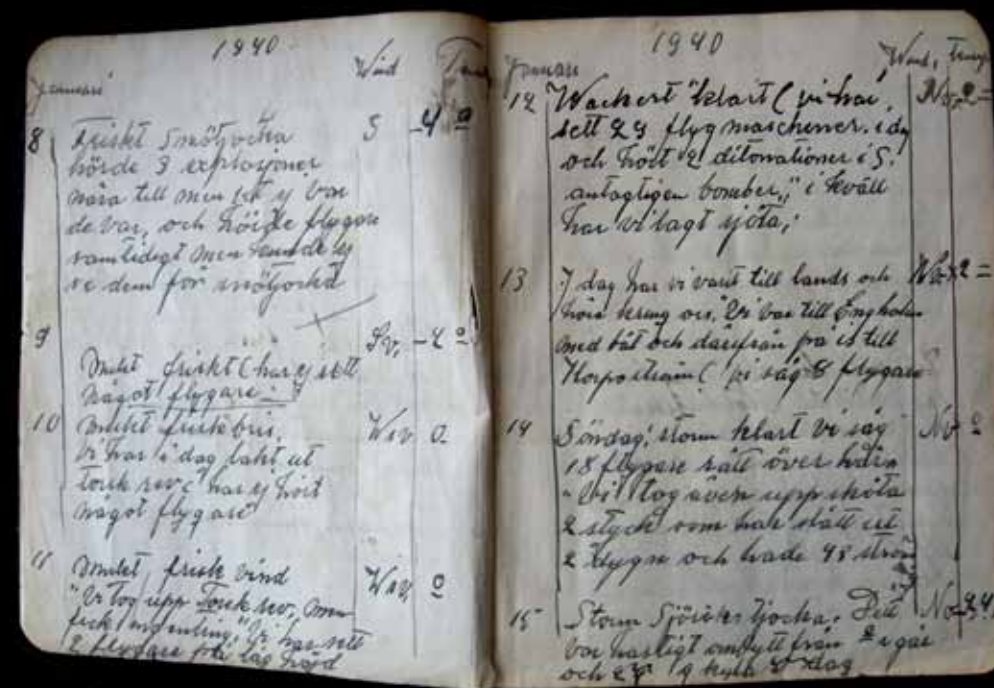 1940
Januari Wind Temp
8 Friskt Snötjocka S -4°
hörde 3 explosjoner
nära till men ej var
de var, och hörde flygare
samtidigt men kunde ej
se dem för snötjocka
9 Sv, -2°
Mulet friskt (har ej sett
något flygare
10 Mulet frisk bris, Wsv 0
vi har i dag lakt ut
torsk rev (har ej hört
något flygare
11 Mulet frisk vind Wsv, 0
"Vi tog upp torsk rev, men
fick ingenting," Vi har sett
2 flygare på låg höjd
1940
Januari Wind, Temp
12 Wackert klart (vi har, No, 2=
sett 29 flygmaschiner. i dag
och hört 2 ditonationer i S.
antagligen bomber," i kväll
har vi lagt sjöta;
13 I dag har vi varit till lands och No 2=
kring oss, Vi var till Engholm
med båt och därifrån på is till
Korpoström (vi såg 8 flygare
14 Söndag; storm klart vi såg No °
18 flygare rätt över
"Vi tog även upp sköta
2 styck som har stått ut
2 dygn och hade 48 ström
15 Storm Sjörök tjocka. Ditt No
var hastigt ombytt från ° i går
och i dag